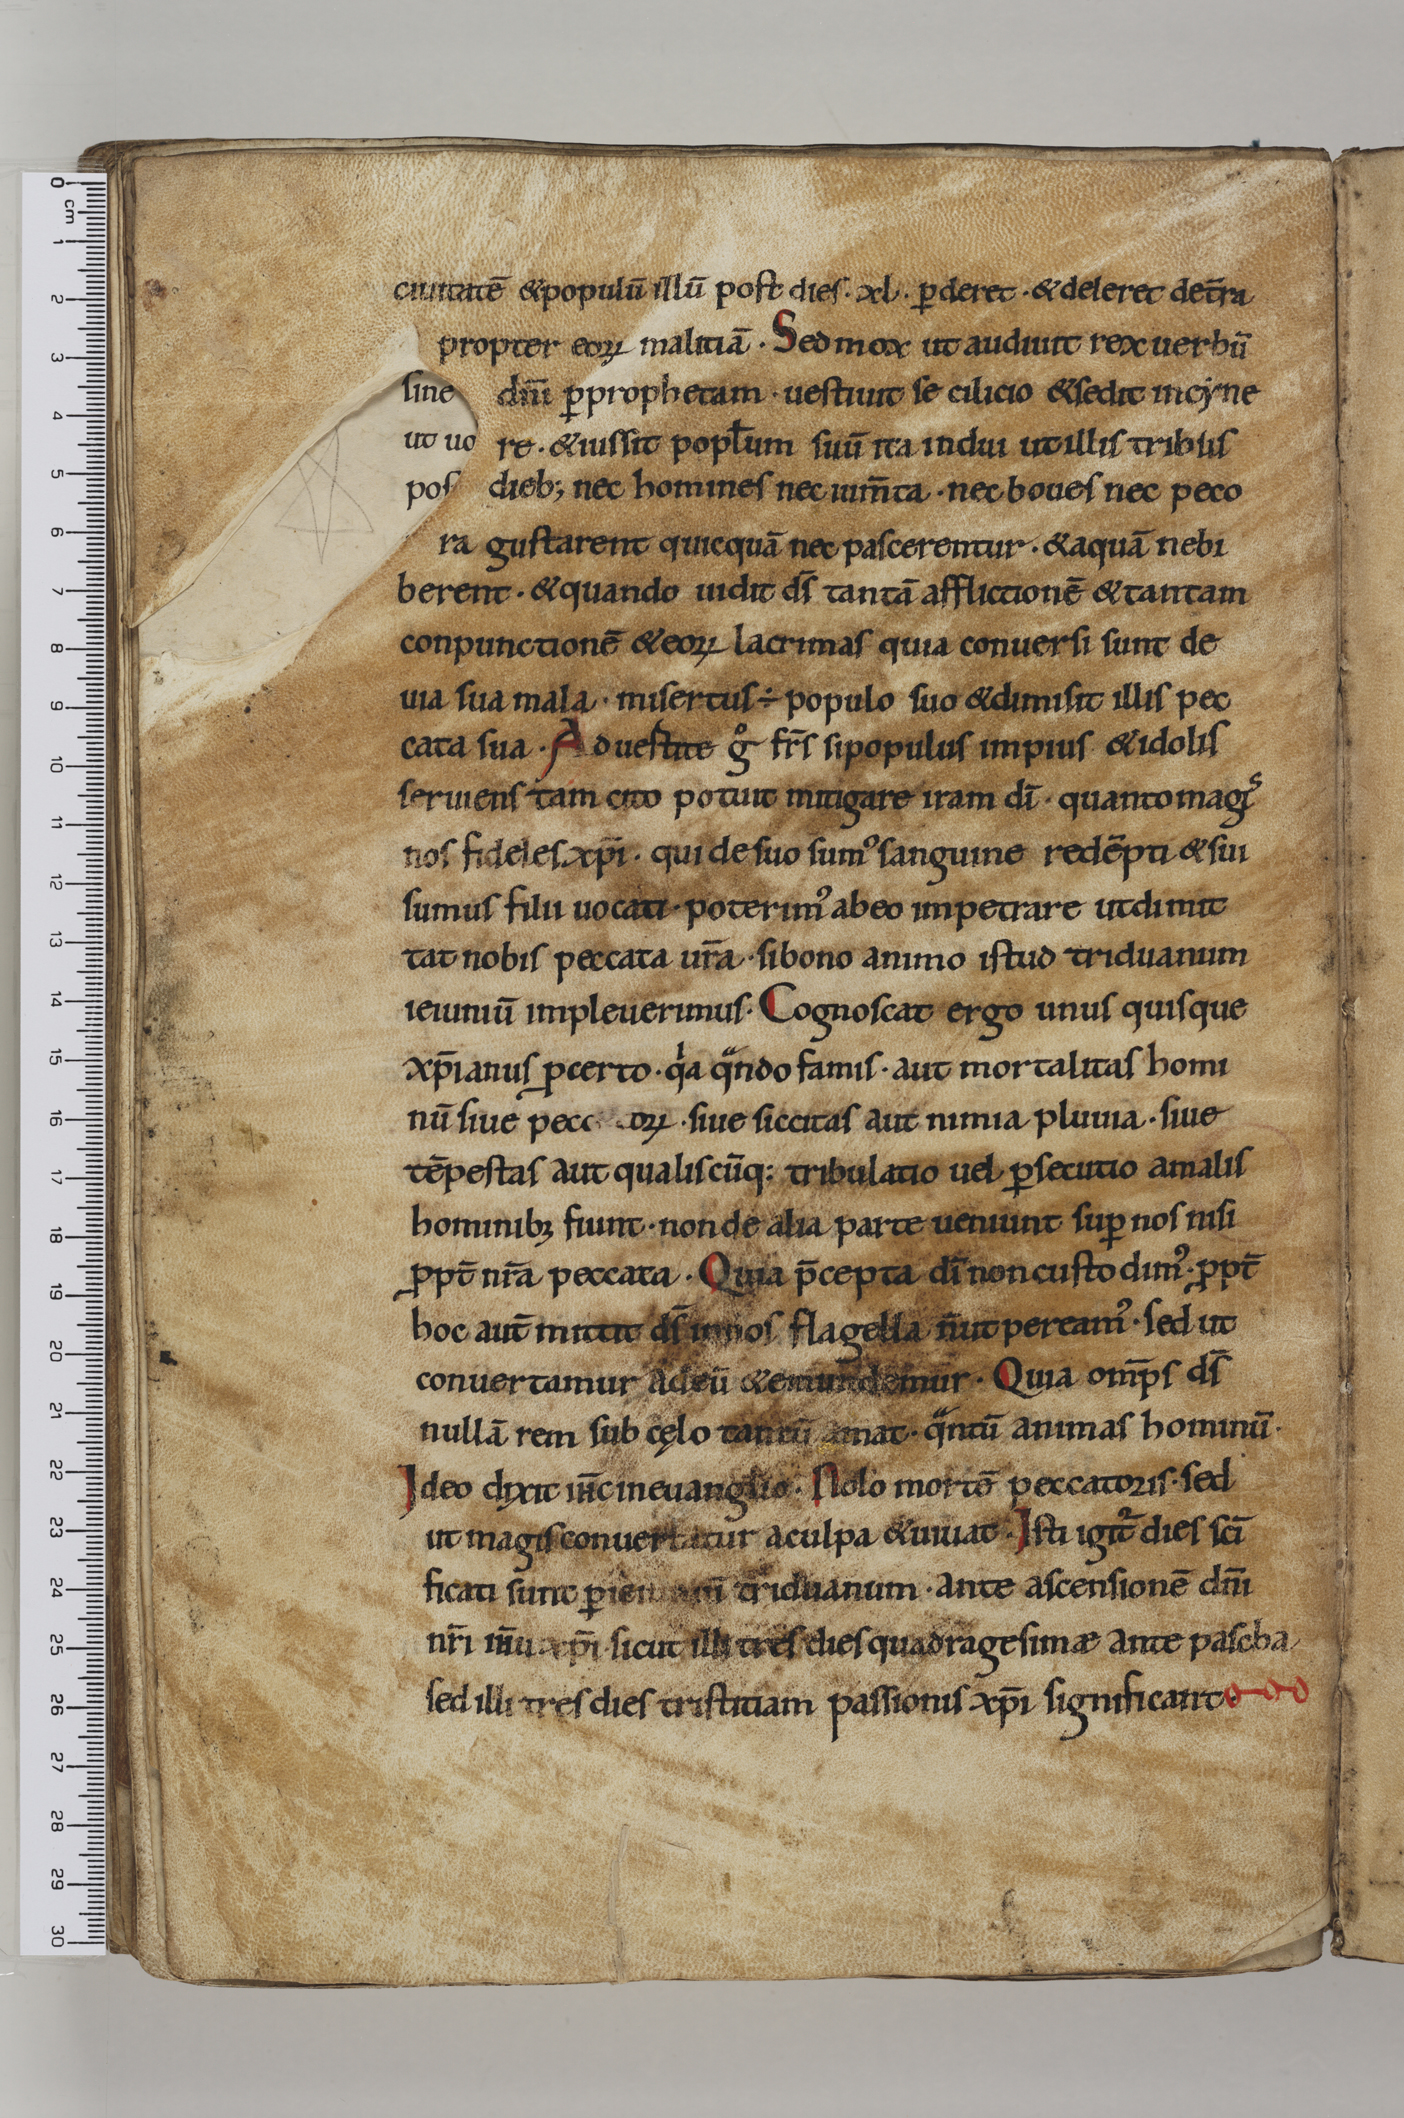 ciuitatē &populū illū post dies · xl · ꝑderet · &deleret det̄ra
propter eoꝝ malitiā · Sed mox ut audiuit rex uerbū
sine dn̄i ꝑprophetam · uestiuit se cilicio &sedit incyne
ut uo re · &iussit popłum suū ita indui ut illis tribus
pos dieb; nec homines nec ium̄ta · nec boues nec peco
ra gustarent quicquā nec pascerentur · &aquā nebi
berent · &quando uidit ds̄ tantā afflictionē &tantam
conpunctionē &eoꝝ lacrimas quia conuersi sunt de
uia sua mala · misertus ÷ populo suo &dimisit illis pec
cata sua · Aduestite g̊ fr̄s sipopulus impius &idolis
seruiens tam cito potuit mitigare iram dī · quantomagis
nos fideles xp̄i · qui de suo sumꝰ sanguine redēpti &sui
sumus filii uocati · poterimꝰ abeo impetrare utdimit
tat nobis peccata ur̄a · sibono animo istud triduanum
ieiuniū impleuerimus · Cognoscat ergo unus quisque
xp̄ianus ꝑcerto · qͥa qͣndo famis · aut mortalitas homi
nū siue pec oꝝ · siue siccitas aut nimia pluuia · siue
tēpestas aut qualiscūq: tribulatio uel ꝑsecutio amalis
hominibꝫ fiunt · non de alia parte ueniunt suꝑ nos nisi
ꝓpt̄ nr̄a peccata · Quia p̄cepta dī non custodimꝰ · ꝓpt̄
hoc aut̄ mittit ds̄ innos flagella n̄ut pereamꝰ · sed ut
conuertamur adeū &emundemur · Quia omp̄s ds̄
nullā rem sub cęlo tantū amat · qͣntū animas hominū ·
Ideo dixit ineuanglio · Nolo mortē peccatoris · sed
ut magis conuertatur aculpa &uiuat · Isti igit᷑ dies sc̄i
ficati sunt ꝑ triduanum · ante ascensionē dn̄i
nr̄i ih̄u xp̄i · sicut illi tres dies quadragesimæ ante pascha
sed illi tres dies tristitiam passionis xp̄i significant